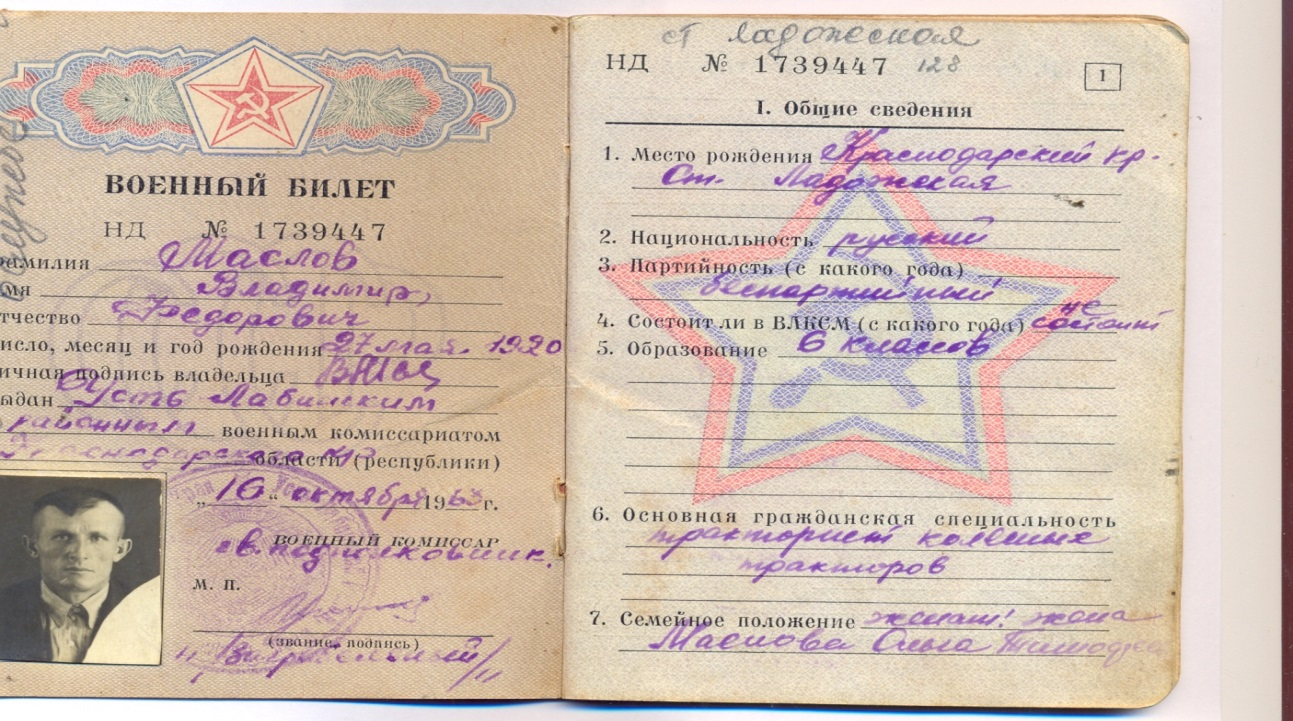 ВОЕННЫЙ БИЛЕТ
НД № 1739447
амилия Маслов
мя Владимир
тчество Федорович
исло, месяц и год рождения 27 мая 1920
ичная подпись владельца
ыдан Усть Лабинским
районным военным комиссариатом
области (республики)
„16“ октября 1963 г.
ВОЕННЫЙ КОМИССАР
подполковник.
М. П.
(звание, подпись)
ст Ладожская
НД № 1739447 128
1
I. Общие сведения
1. Место рождения Краснодарский кр.
Ст. Ладожская
2. Национальность русский
3. Партийность (с какого года)
беспартийный
4. Состоит ли в ВЛКСМ (с какого года) не состоит
5. Образование 6 классов
6. Основная гражданская специальность
тракторист колесных
тракторов
7. Семейное положение женат: жена
Маслова Ольга